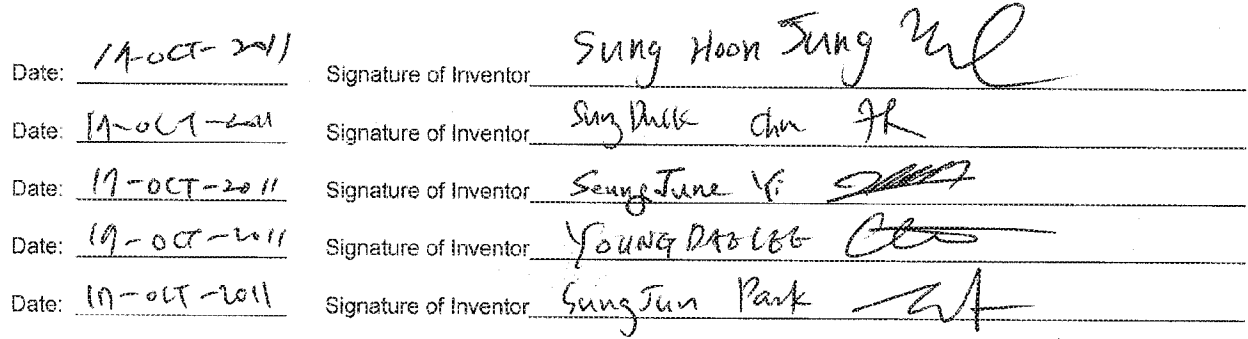 Date: 19-OCT-2011 Signature of Inventor Sung Hoon Jung
Date: 19-OCT-2011 Signature of Inventor Sung Duck Chun
Date: 19-OCT-2011 Signature of Inventor SeungJune Yi
Date: 19-OCT-2011 Signature of Inventor YOUNG DAE LEE
Date: 19-OCT-2011 Signature of Inventor SungJun Park